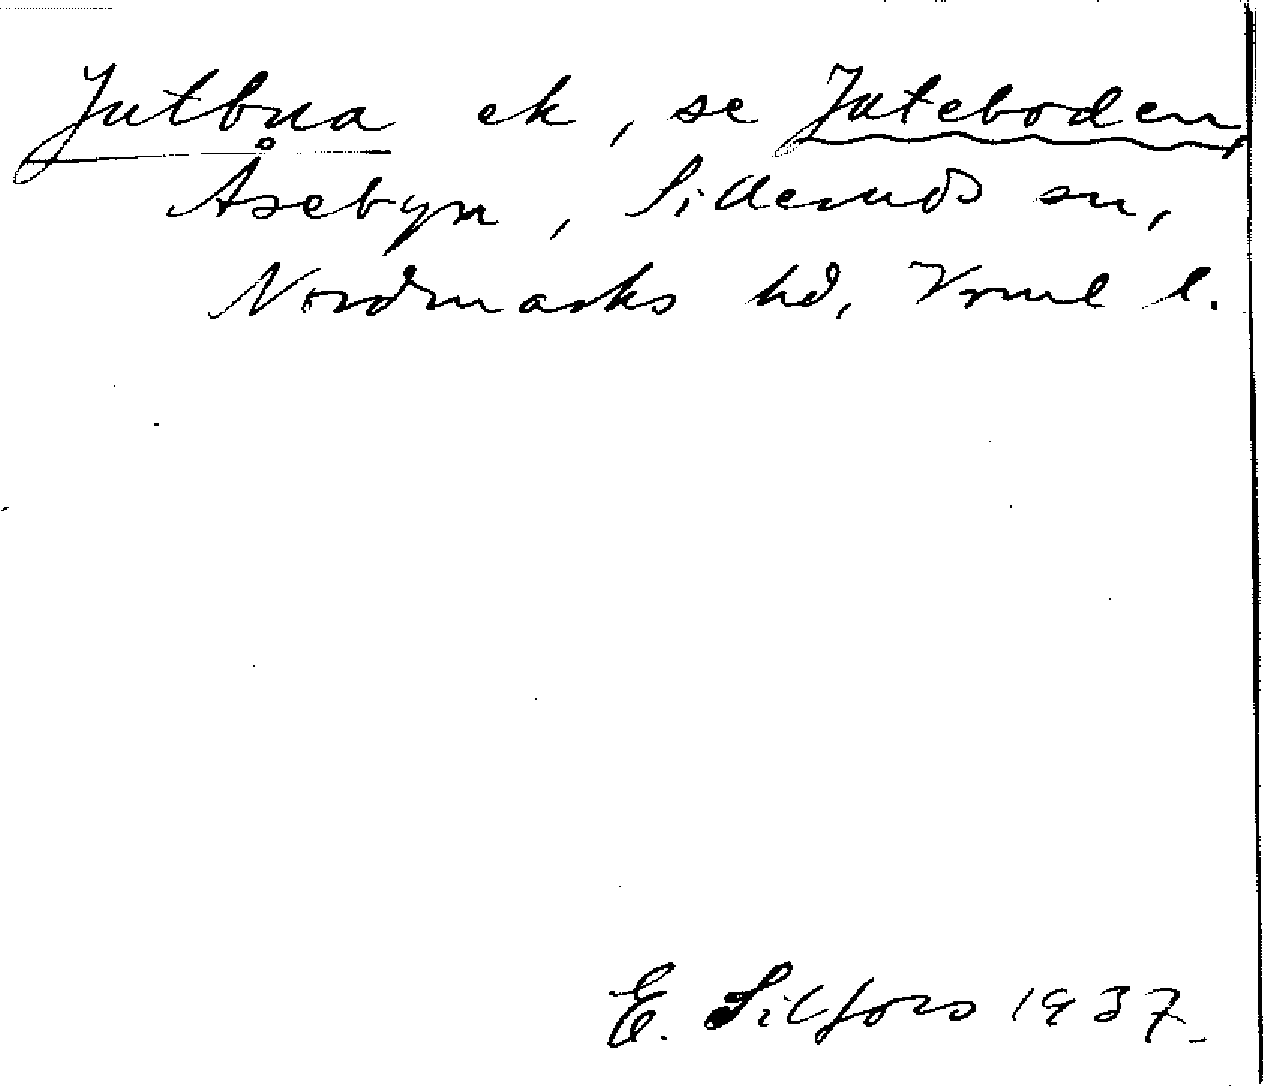 Jutbua ek, se Juteboden,
Åsebyn, Silleruds sn,
Nordmarks hd, Vrml l.
E. Silfors 1937.